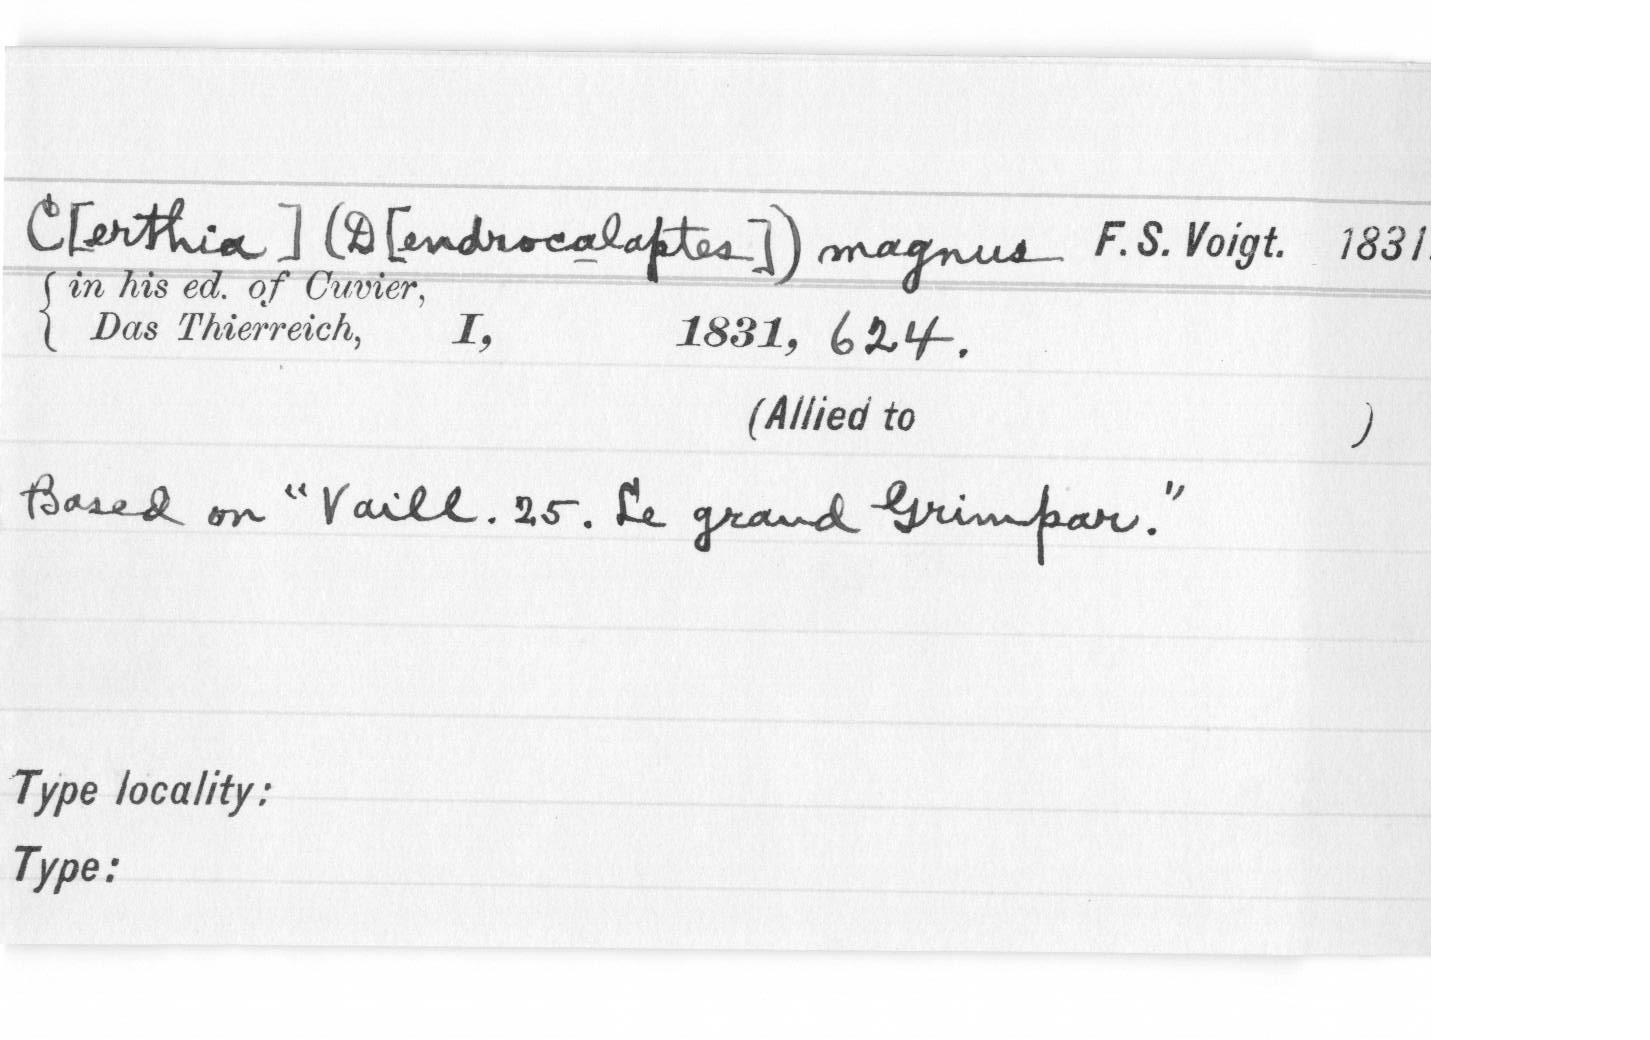 C[erthia] (D[endrocalaptes]) magnus F. S. Voigt. 1831.
{ in his ed. of Cuvier,
Das Thierreich, I, 1831, 624.
(Allied to )
Based on "Vaill. 25. Le grand Grimpar."
Type locality:
Type: